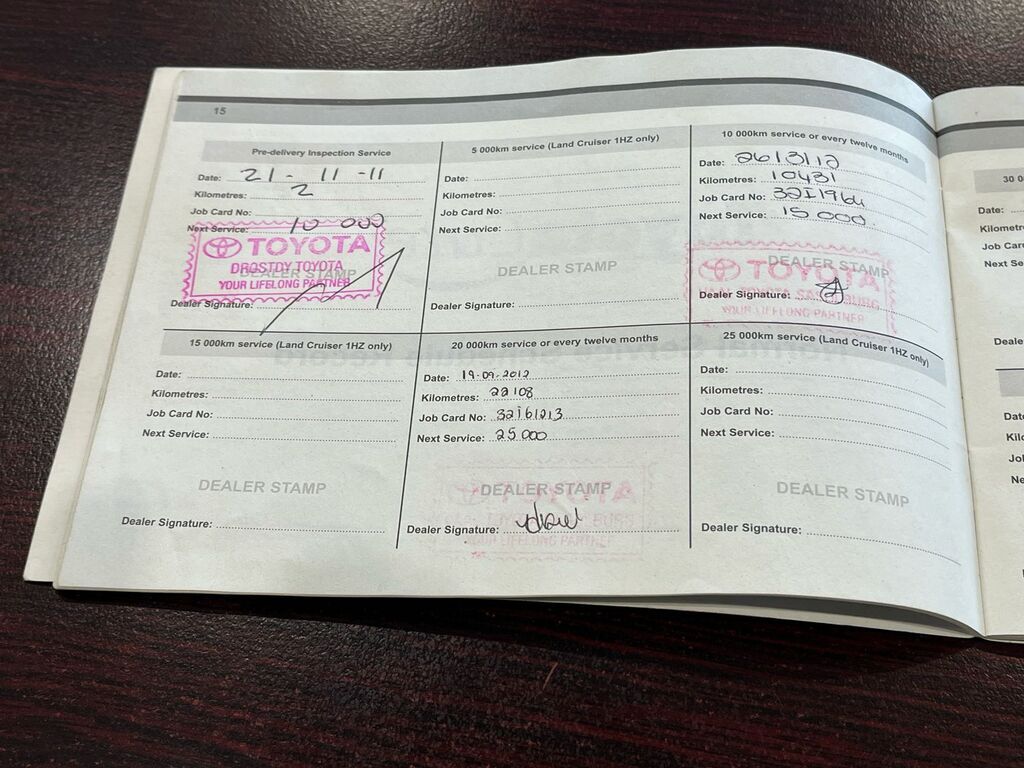 15
Pre-delivery Inspection Service
Date: 21 - 11 -11
Kilometres: 2
Job Card No:
Next Service: 10 000
TOYOTA
DROSTDY TOYOTA
DEALER STAMP
YOUR LIFELONG PARTNER
Dealer Signature:
5 000km service (Land Cruiser 1HZ only)
Date:
Kilometres:
Job Card No:
Next Service:
DEALER STAMP
Dealer Signature:
10 000km service or every twelve months
Date: 26/3/12
Kilometres: 10431
Job Card No:
Next Service: 15 000
DEALER STAMP
TOYOTA
Dealer Signature:
YOUR LIFELONG PARTNER
15 000km service (Land Cruiser 1HZ only)
Date:
Kilometres:
Job Card No:
Next Service:
DEALER STAMP
Dealer Signature:
20 000km service or every twelve months
Date: 19.09.2012
Kilometres: 22108
Job Card No:
Next Service: 25 000
DEALER STAMP
Dealer Signature:
YOUR LIFELONG PARTNER
25 000km service (Land Cruiser 1HZ only)
Date:
Kilometres:
Job Card No:
Next Service:
DEALER STAMP
Dealer Signature:
30 0
Date:
Kilometr
Job Car
Next Se
Deale
Dat
Kilo
Jo
Ne